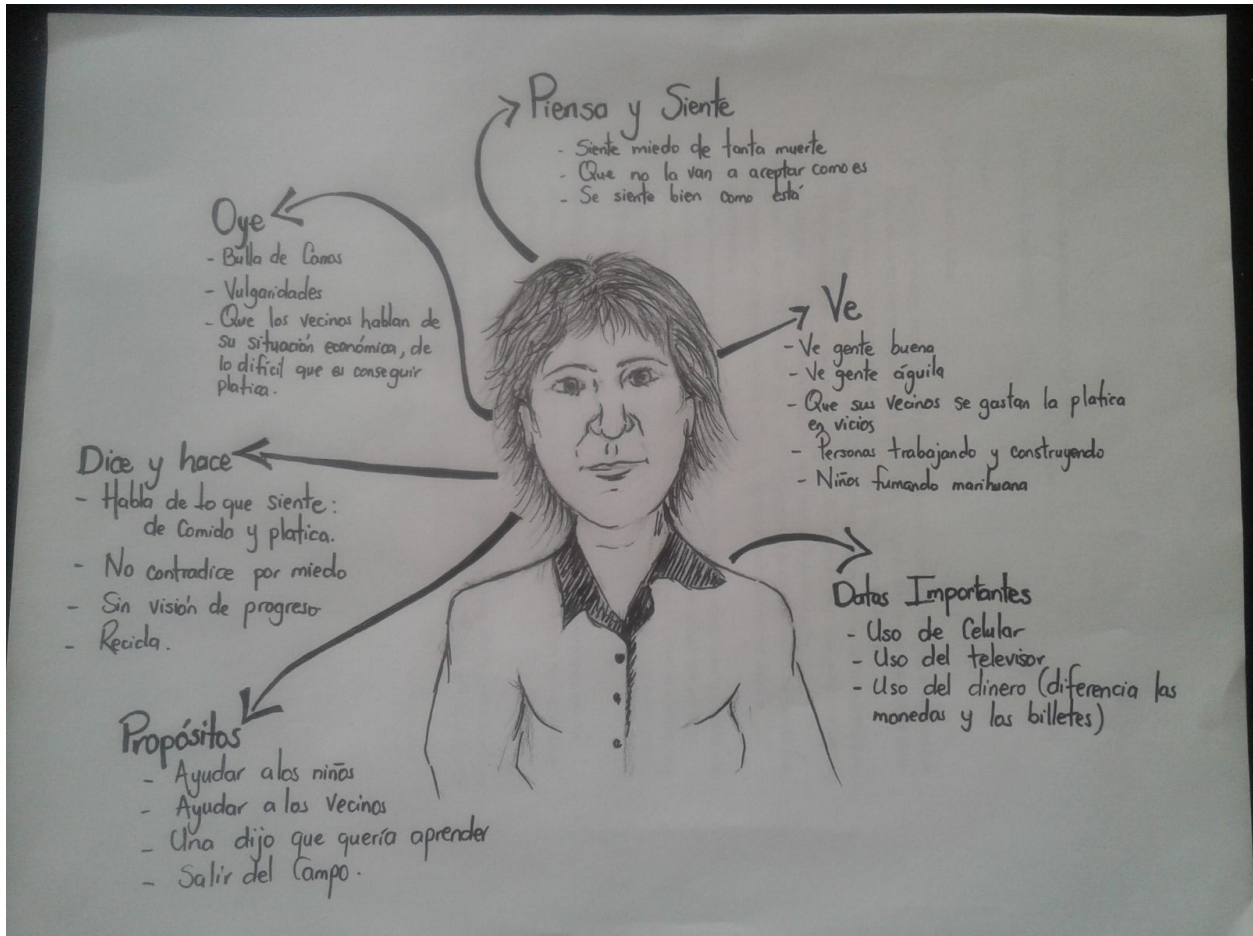 Piensa y Siente
- Siente miedo de tanta muerte
- Que no la van a aceptar como es
- Se siente bien como está
Oye
- Bulla de Carros
- Vulgaridades
- Que los vecinos hablan de
su situación económica, de
lo dificil que es conseguir
platica.
Ve
- Ve gente buena
- Ve gente águila
- Que sus vecinos se gastan la platica
en vicios
- Personas trabajando y construyendo
- Niños fumando marihuana
Dice y hace
- Habla de lo que siente:
de Comida y platica.
- No contradice por miedo
- Sin visión de progreso
- Recicla.
Datos Importantes
- Uso de Celular
- Uso del televisor
- Uso del dinero (diferencia las
monedas y los billetes)
Propósitos
- Ayudar a los niños
- Ayudar a los Vecinos
- Una dijo que quería aprender
- Salir del Campo.